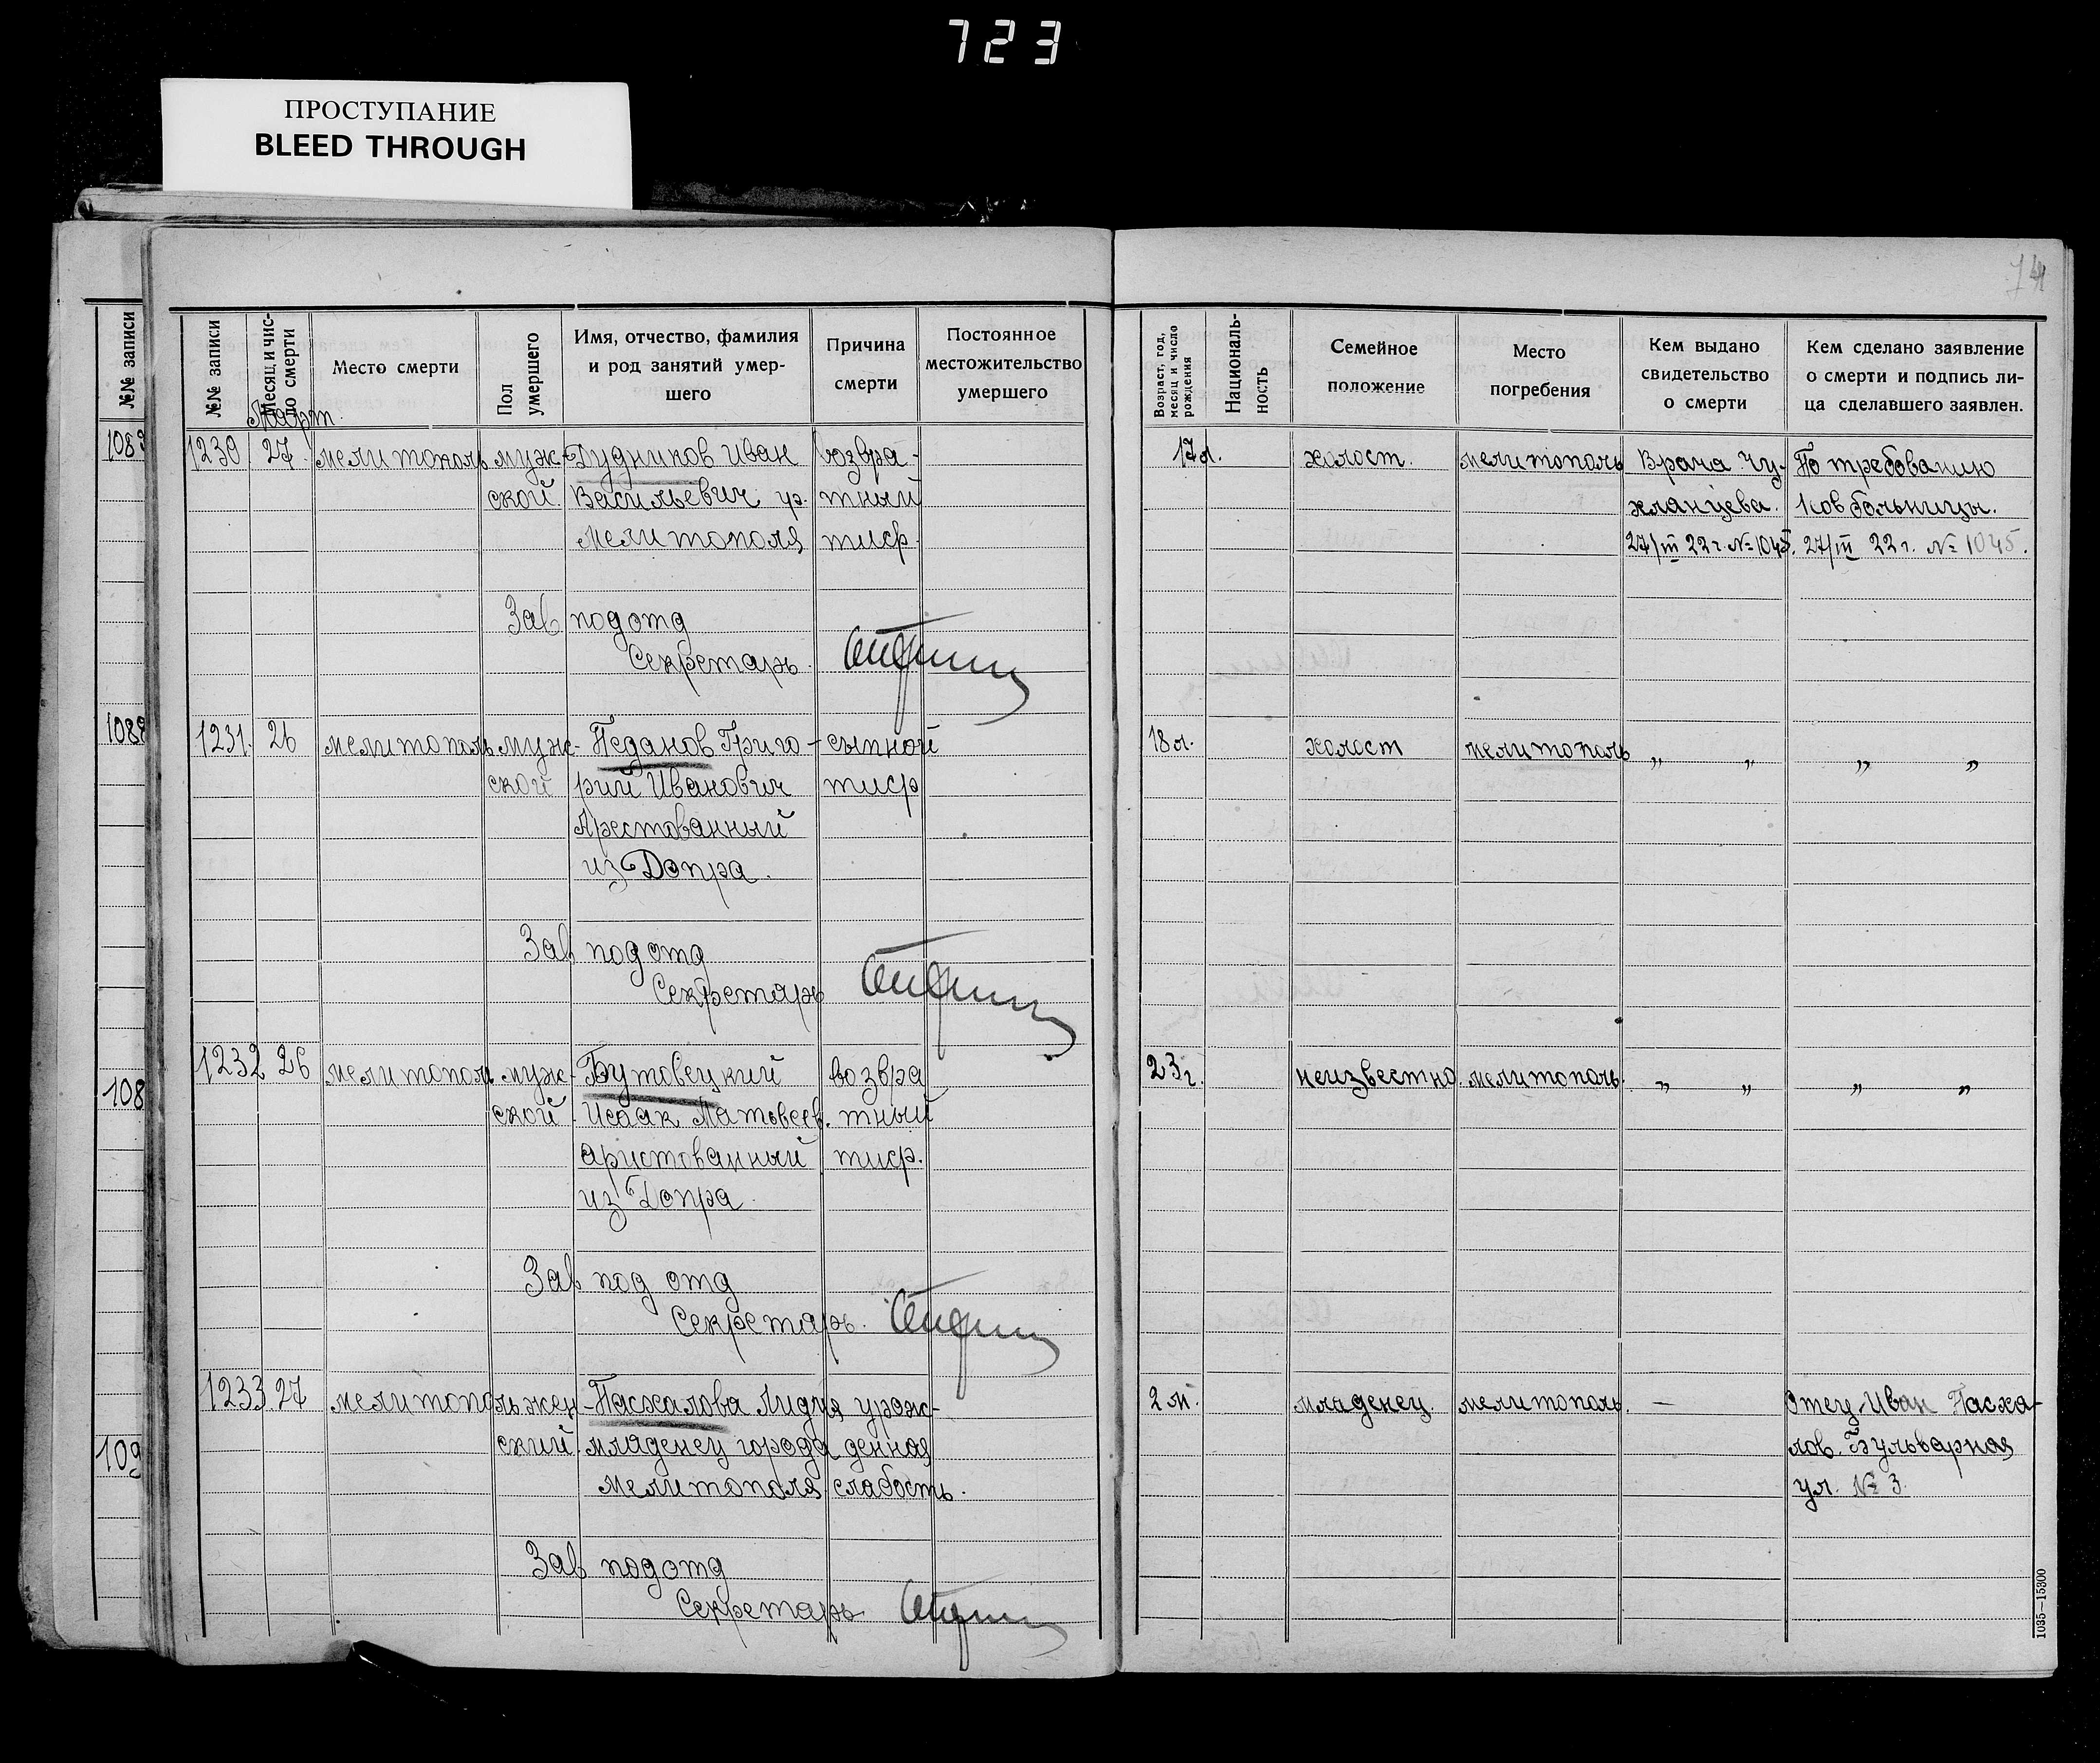 723
ПРОСТУПАНИЕ
BLEED THROUGH
74
№№ записи
№№ записи
Месяц и чис-
ло смерти
Место смерти
Пол
умершего
Имя, отчество, фамилия
и род занятий умер-
шего
Причина
смерти
Постоянное
местожительство
умершего
Возраст, год,
месяц и число
рождения
Националь-
ность
Семейное
положение
Место
погребения
Кем выдано
свидетельство
о смерти
Кем сделано заявление
о смерти и подпись ли-
ца сделавшего заявлен.
Март.
1230 27 мелитополь муж- Дудников Иван возвра- 17 л. холост. мелитополь Врача Чу- По требованию
ской. Васильевич ур. тный хланцева. Сов больницы.
мелитополя тиф. 27/III 22 г. № 1045. 27/III 22 г. № 1045.
Зав подотд
Секретарь.
1088
1231. 26 мелитополь муж- Педанов Григо- сыпной 18 л. холост мелитополь „ „ „ „
ской рий Иванович тиф
Арестованный
из Допра.
Зав подотд
Секретарь
1232 26 мелитополь муж- Бутовецкий возвра 23 г. неизвестно. мелитополь. „ „ „ „
108
ской. Исаак Матвеев. тный
аристованный тиф.
из Допра.
Зав под отд
Секретарь.
1233 27 мелитополь жен- Пасхалова Лидия урож- 2 м. младенец. мелитополь. — Отец Иван Пасха-
109
ский. младенец города денная лов. Бульварная
мелитополя слабость. ул. № 3.
Зав подотд
Секретарь
1035—15300